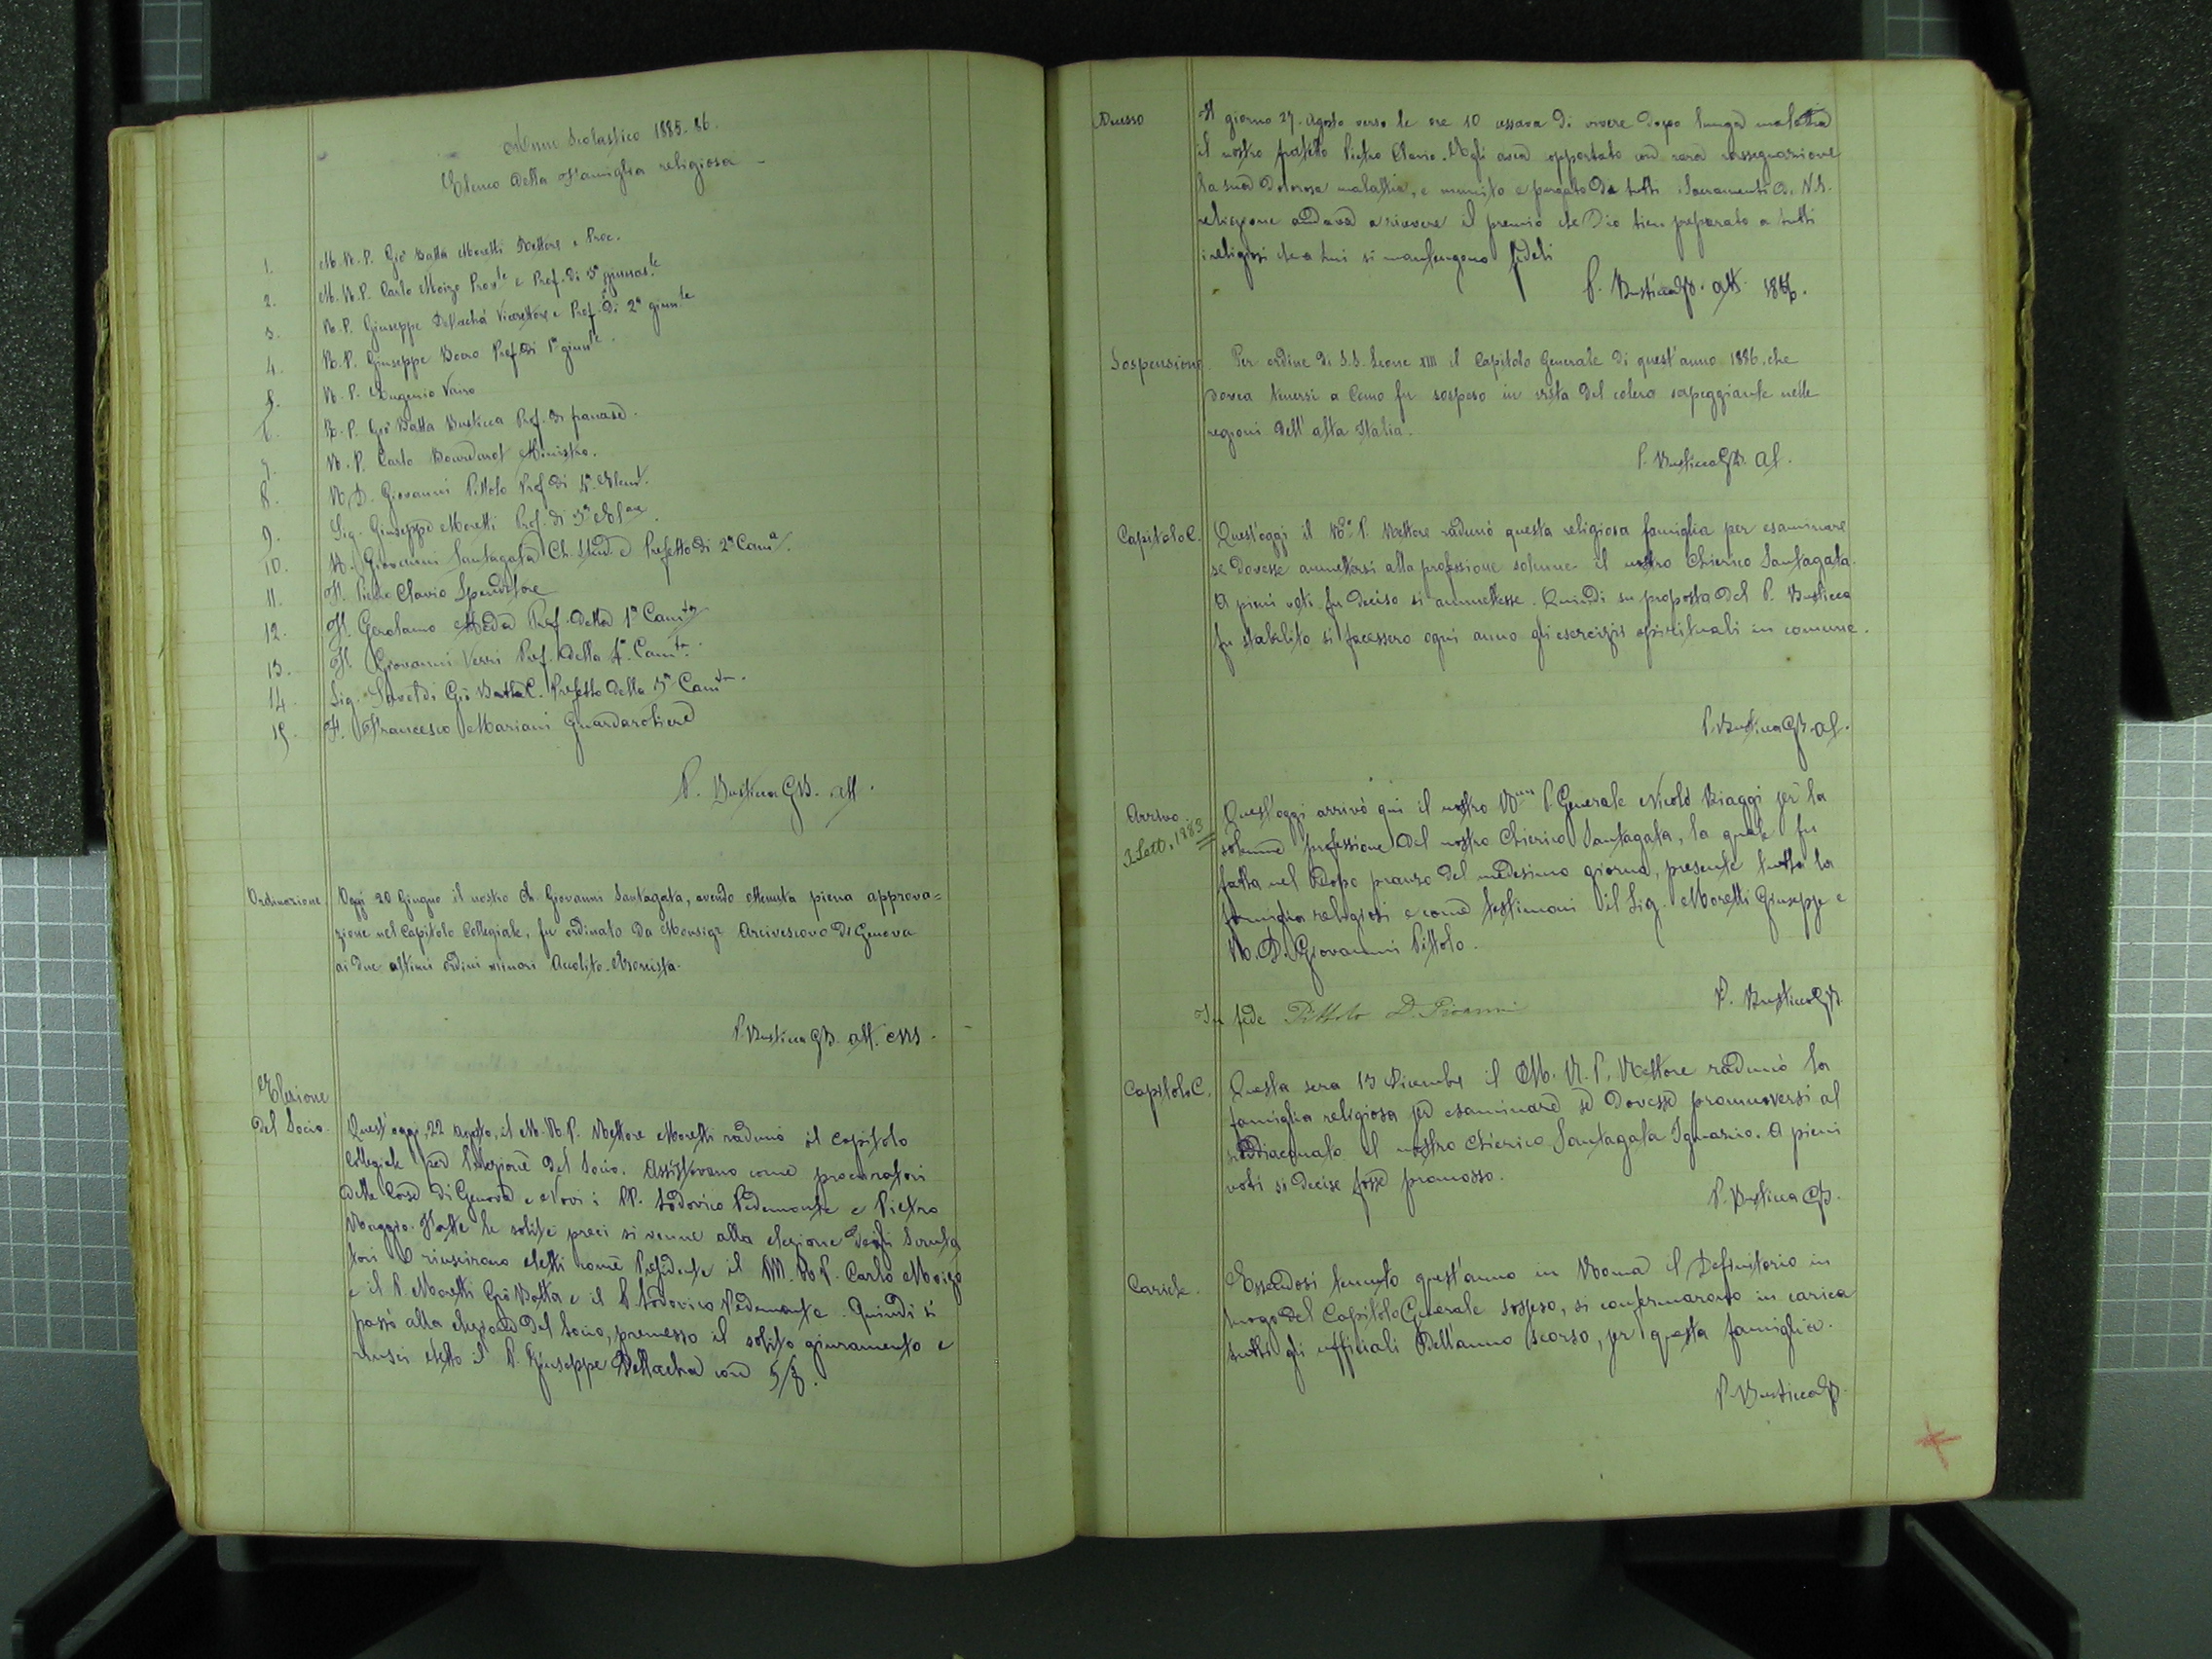 Anno Scolastico 1885-86.
Elenco della Famiglia religiosa -
1. M. R. P. Gio Batta Moretti Rettore e Proc.
2. M. R. P. Carlo Moizo Prov.le e Prof. di 3a ginnas.le
3. R. P. Giuseppe Dellachà Vicerettore e Prof. di 2a ginn.le
4. R. P. Giuseppe Boero Prof. di 1a ginn.le
5. R. P. Eugenio Vairo
6. R. P. Gio Batta Busticca Prof. di francese.
7. R. P. Carlo Bourdarot Ministro.
8. R. D. Giovanni Pittolo Prof di 4a Elem.
9. Sig. Giuseppe Moretti Prof. di 3a
10. R. Giovanni Santagata Ch. Stud. e Prefetto di 2a Cam.a
11. F. Pietro Clavio Spenditore
12. F. Gerolamo Pref. della 1a Cam.ta
13. F. Giovanni Verri Pref. della 4a Cam.ta
14. Sig. Gio Batta C. Prefetto della 3a Cam.ta
15. F. Francesco Mariani Guardarobiere
P. Busticca GB. att.
Ordinazione. Oggi 20 Giugno il nostro Ch. Giovanni Santagata, avendo ottenuta piena approva=
zione nel Capitolo Collegiale, fu ordinato da Monsigr Arcivescovo di Genova
ai due ultimi ordini minori Accolito-Esorcista.
P. Busticca GB. att.
Elezione
del Socio. Quest'oggi, 22 agosto, il M. R. P. Rettore Moretti radunò il capitolo
Collegiale per l'elezione del Socio. Assistevano come procuratori
delle Case di Genova e Novi i PP. Lodovico Pedemonte e Pietro
Maggio. Fatte le solite preci si venne alla elezione degli Scruta
tori e riuscirono eletti come Presidente il M. R. P. Carlo Moizo
e il P. Moretti Gio Batta e il P. Lodovico Pedemonte. Quindi si
passò alla elezione del Socio, premesso il solito giuramento e
riuscì eletto il P. Giuseppe Dellachà con
Decesso Il giorno 27. Agosto verso le ore 10 cessava di vivere dopo lunga malattia
il nostro fratello Pietro Clavio. Egli avea sopportato con rara rassegnazione
la sua dolorosa malattia, e munito e purgato da tutti i Sacramenti di N. S.
religione andava a ricevere il premio che Dio tien preparato a tutti
i religiosi che a Lui si mantengono fedeli
P. Busticca GB. att. 1886.
Sospensione. Per ordine di S. S. Leone XIII il Capitolo Generale di quest'anno 1886. che
dovea tenersi a Como fu sospeso in vista del colera serpeggiante nelle
regioni dell'alta Italia.
P. Busticca GB. at.
Capitolo C. Quest'oggi il P. Rettore radunò questa religiosa famiglia per esaminare
se dovesse ammettersi alla professione solenne il nostro Chierico Santagata.
A pieni voti fu deciso si ammettesse. Quindi su proposta del P. Busticca
fu stabilito si facessero ogni anno gli esercizii spirituali in comune.
P. Busticca GB. at.
Arrivo. Quest'oggi arrivò qui il nostro P. Generale Nicolò Biaggi per la
2 Sett. 1883 solenne professione del nostro Chierico Santagata, la quale fu
fatta nel dopo pranzo del medesimo giorno, presente tutta la
famiglia religiosi e come testimoni il Sig. Moretti Giuseppe e
R. D. Giovanni Pittolo.
P. Busticca GB.
In fede Pittolo D. Giovanni
Capitolo C. Questa sera 13 Dicembre il M. R. P. Rettore radunò la
famiglia religiosa per esaminare se dovesse promuoversi al
suddiaconato il nostro Chierico Santagata Ignazio. A pieni
voti si decise fosse promosso.
P. Busticca GB.
Cariche. Essendosi tenuto quest'anno in Roma il Definitorio in
luogo del Capitolo Generale sospeso, si confermarono in carica
tutti gli ufficiali dell'anno scorso, per questa famiglia.
P. Busticca GB.